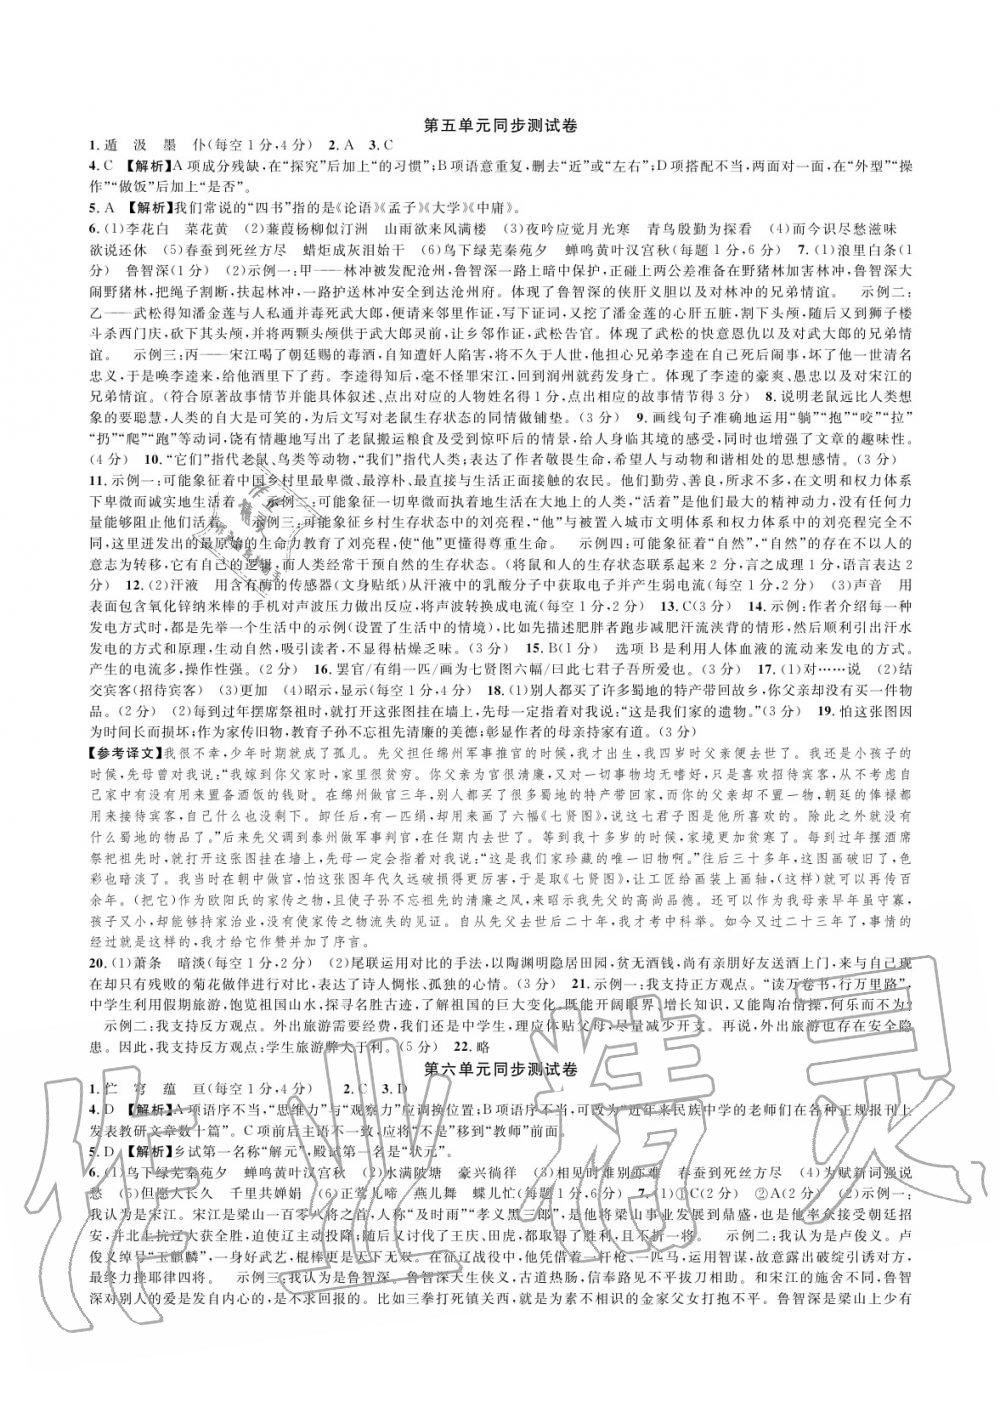 第五单元同步测试卷
1. 遁　汲　墨　仆(每空1分,4分)　2. A　3. C
4. C　【解析】A项成分残缺,在“探究”后加上“的习惯”;B项语意重复,删去“近”或“左右”;D项搭配不当,两面对一面,在“外型”“操
作”“做饭”后加上“是否”。
5. A　【解析】我们常说的“四书”指的是《论语》《孟子》《大学》《中庸》。
6. (1)李花白　菜花黄　(2)蒹葭杨柳似汀洲　山雨欲来风满楼　(3)夜吟应觉月光寒　青鸟殷勤为探看　(4)而今识尽愁滋味
欲说还休　(5)春蚕到死丝方尽　蜡炬成灰泪始干　(6)鸟下绿芜秦苑夕　蝉鸣黄叶汉宫秋(每题1分,6分)　7. (1)浪里白条(1
分)　鲁智深(1分)　(2)示例一:甲——林冲被发配沧州,鲁智深一路上暗中保护,正碰上两公差准备在野猪林加害林冲,鲁智深大
闹野猪林,把绳子割断,扶起林冲,一路护送林冲安全到达沧州府。体现了鲁智深的侠肝义胆以及对林冲的兄弟情谊。　示例二:
乙——武松得知潘金莲与人私通并毒死武大郎,便请来邻里作证,写下证词,又挖了潘金莲的心肝五脏,割下头颅,随后又到狮子楼
斗杀西门庆,砍下其头颅,并将两颗头颅供于武大郎灵前,让乡邻作证,武松告官。体现了武松的快意恩仇以及对武大郎的兄弟情
谊。　示例三:丙——宋江喝了朝廷赐的毒酒,自知遭奸人陷害,将不久于人世,他担心兄弟李逵在自己死后闹事,坏了他一世清名
忠义,于是唤李逵来,给他酒里下了药。李逵得知后,毫不怪罪宋江,回到润州就药发身亡。体现了李逵的豪爽、愚忠以及对宋江的
兄弟情谊。(符合原著故事情节并能简要叙述,点出对应的人物姓名得1分,点出相应的故事情节得3分)　8. 说明老鼠远比人类想
象的要聪慧,人类的自大是可笑的,为后文写对老鼠生存状态的同情做铺垫。(3分)　9. 画线句子准确地运用“躺”“抱”“咬”“拉”
“扔”“爬”“跑”等动词,饶有情趣地写出了老鼠搬运粮食及受到惊吓后的情景,给人身临其境的感受,同时也增强了文章的趣味性。
(4分)　10. “它们”指代老鼠、鸟类等动物,“我们”指代人类;表达了作者敬畏生命,希望人与动物和谐相处的思想感情。(3分)
11. 示例一:可能象征着中国乡村里最卑微、最淳朴、最直接与生活正面接触的农民。他们勤劳、善良,所求不多,在文明和文明体系
下卑微而诚实地生活着。　示例二:可能象征一切卑微而执着地生活在大地上的人类,“活着”是他们最大的精神动力,没有任何力
量能阻止他们活着。　示例三:可能象征乡村生存状态中的刘亮程,“他”与被置入城市文明体系和权力体系中的刘亮程完全不
同,这里迸发出的最原始的生命力教育了刘亮程,使“他”更懂得尊重生命。　示例四:可能象征着“自然”,“自然”的存在不以人的
意志为转移,它有自己的逻辑,而人类经常过于忽视自然的生存状态。(将鼠和人的生存状态联系起来2分,言之成理1分,语言表达2
分)　12. (2)汗液　用含有酶的传感器(文身贴纸)从汗液中的乳酸分子中获取电子并产生弱电流(每空1分,2分)　(3)声音　用
表面包含氧化锌纳米棒的手机对声波压力做出反应,将声波转换成电流(每空1分,2分)　13. C(3分)　14. 示例:作者介绍每一种
发电方式时,都是先举一个生活中的示例(设置了生活中的情境),比如先描述肥胖者跑步减肥汗流浃背的情形,然后顺利引出汗水
发电的方式和原理,生动自然,吸引读者,不显得枯燥乏味。(3分)　15. B(1分)　选项B是利用人体血液的流动来发电的方式。
产生的电流多,操作性强。(2分)　16. 罢官/有绢一匹/画为七贤图六幅/曰此七君子吾所爱也。(3分)　17. (1)对……说　(2)结
交宾客(招待宾客)　(3)更加　(4)昭示,显示(每空1分,4分)　18. (1)别人都买了许多蜀地的特产带回故乡,你父亲却没有买一件物
品。(2分)　(2)每到过年摆席祭祖时,就打开这张图挂在墙上,先母一定指着对我说:“这是我们家的遗物。”(3分)　19. 怕这张图因
为时间长而损坏;作为家传旧物,教育子孙不忘先祖清廉的美德;彰显作者的母亲持家有道。(3分)
【参考译文】我很不幸,少年时期就成了孤儿。先父担任绵州军事推官的时候,我才出生,我四岁时父亲便去世了。我还是小孩子的
时候,先母曾对我说:“我嫁到你父家时,家里很贫穷。你父亲为官很清廉,又对一切事物均无嗜好,只是喜欢招待宾客,不考虑自
己家中是否有没有用来置备酒饭的钱财。在绵州做官三年,别人都买了很多蜀地的特产带回家,而你的父亲却不买一物,朝廷的俸禄都
用来接待宾客,自己什么也没剩下。卸任后,有一匹绢,却用来画了六幅《七贤图》,说这七君子图是他所喜欢的。除此之外就没有
什么蜀地的物品了。”后来先父调到泰州做军事判官,在任期内去世了。等到我十多岁的时候,家境更加贫寒了。每到过年摆酒席
祭祀祖先时,就打开这张图挂在墙上,先母一定会指着对我说:“这是我们家珍藏的唯一旧物啊。”往后三十多年,这图画破旧了,色
彩也暗淡了。我当时在朝中做官,怕这张图年代久远破损得更厉害,于是取《七贤图》,让工匠给画装上画轴,(这样)就可以再传百
余年。(把它)作为欧阳氏的家传之物,且使子孙不忘祖先的清廉之风,来昭示我先父的高尚品德。还可以作为我母亲早年虽守寡,
孩子又小,却能够持家治业,没有使家传之物流失的见证。自从先父去世后二十年,我才考中科举。如今又过了二十三年了,事情的
经过就是这样的,我才给它作赞并加了序言。
20. (1)萧条　暗淡(每空1分,2分)　(2)尾联运用对比的手法,以陶渊明隐居田园,贫无酒钱,尚有亲朋好友送酒上门,与自己现
在却只有残败的菊花做伴进行对比,表达了诗人惆怅、孤独的心情。(3分)　21. 示例一:我支持正方观点。“读万卷书,行万里路”,
中学生利用假期旅游,饱览祖国山水,探寻名胜古迹,了解祖国的巨大变化,既能开阔眼界,增长知识,又能陶冶情操,何乐而不为?
示例二:我支持反方观点。外出旅游需要经费,我们还是中学生,理应体贴父母,尽量减少开支。再说,外出旅游也存在安全隐
患。因此,我支持反方观点:学生旅游弊大于利。(5分)　22. 略
第六单元同步测试卷
1. 伫　穹　蕴　亘(每空1分,4分)　2. C　3. D
4. D　【解析】A项语序不当,“思维力”与“观察力”应调换位置;B项语序不当,可改为“近年来民族中学的老师们在各种正规报刊上
发表教研文章数十篇”。C项前后主语不一致,应将“不是”移到“教师”前面。
5. D　【解析】乡试第一名称“解元”,殿试第一名是“状元”。
6. (1)鸟下绿芜秦苑夕　蝉鸣黄叶汉宫秋　(2)水满陂塘　豪兴徜徉　(3)相见时难别亦难　春蚕到死丝方尽　(4)为赋新词强说
愁　(5)但愿人长久　千里共婵娟　(6)正莺儿啼　燕儿舞　蝶儿忙(每题1分,6分)　7. (1)①C(2分)　②A(2分)　(2)示例一:
我认为是宋江。宋江是梁山一百零八将之首,人称“及时雨”“孝义黑三郎”,是他将梁山事业发展到鼎盛,也是他率众接受朝廷招
安,并北上抗辽大获全胜,迫使辽主求和;随后又讨伐了王庆、田虎,都取得了胜利,且不折一将。　示例二:我认为是卢俊义。卢
俊义绰号“玉麒麟”,一身好武艺,棍棒更是天下无双。在征辽战役中,他凭借着一杆枪、一匹马,运用智谋,故意露出破绽引诱对方,
最终力挫耶律四将。　示例三:我认为是鲁智深。鲁智深天生侠义,古道热肠,信奉路见不平拔刀相助。和宋江的施舍不同,鲁智
深对别人的爱是发自内心的,是不求回报的。比如三拳打死镇关西,就是为素不相识的金家父女打抱不平。鲁智深是梁山上少有
作业精灵